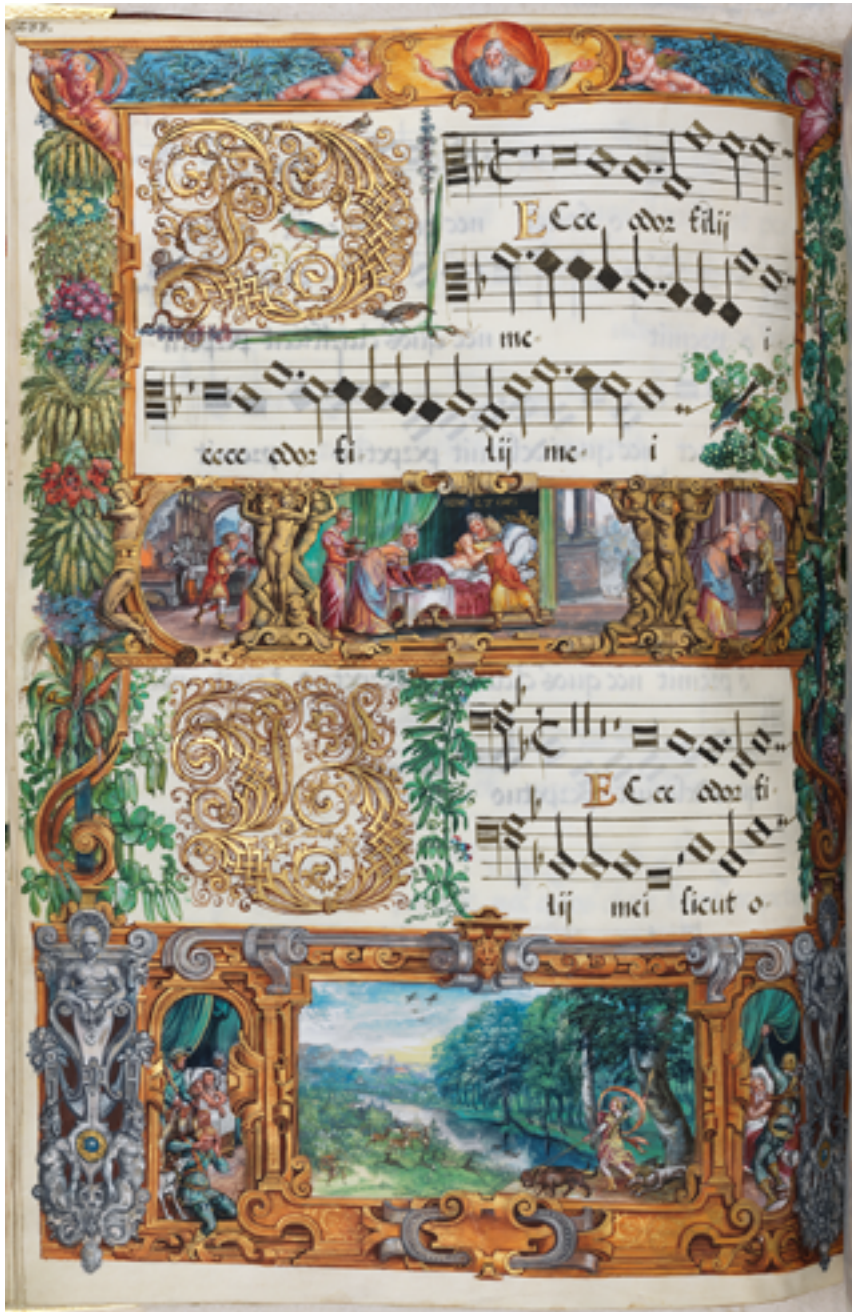 ECce odor filij
me- i
ecce odor fi- lij me- i
ECce odor fi-
lij mei sicut o-